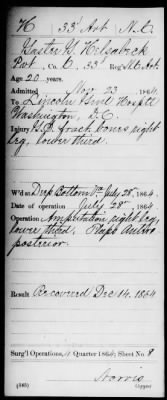 H 33 Art N.C.
Kaster Y Hilsabeck
Pvt., Co. C 33' Reg't N.C. Art.
Age 20 years.
Admitted Nov 23, 1864,
To Lincoln Genl Hospl
Washington, D.C.
Injury G.S. fract. bones right
leg, lower third.
W'd at Deep Bottom Va July 28, 1864.
Date of operation July 28, 1864
Operation Amputation right leg,
lower third. Flaps antero
posterior.
Result Recovered Dec 14, 1864
Surg'l Operations, Quarter 1864; Sheet No. 8
(565) Copyist.